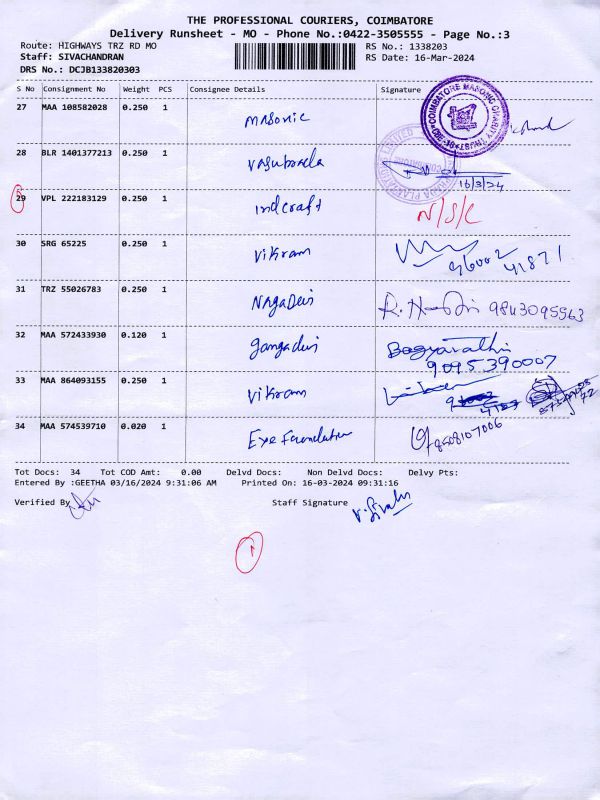 THE PROFESSIONAL COURIERS, COIMBATORE
Delivery Runsheet - MO - Phone No.:0422-3505555 - Page No.:3
Route: HIGHWAYS TRZ RD MO RS No.: 1338203
Staff: SIVACHANDRAN RS Date: 16-Mar-2024
DRS No.: DCJB133820303
S No Consignment No Weight PCS Consignee Details Signature
27 MAA 108582028 0.250 1 Masonic
COIMBATORE MASONIC CHARITY TRUST
28 BLR 1401377213 0.250 1 16/3/24
29 VPL 222183129 0.250 1 indcraft N/S/C
30 SRG 65225 0.250 1 Vikram 96002
41871
31 TRZ 55026783 0.250 1 Nagadevi 9843095563
32 MAA 572433930 0.120 1 gangadevi Bagyarathi
9095390007
33 MAA 864093155 0.250 1 Vikram
34 MAA 574539710 0.020 1 Eye Foundation 8508107006
Tot Docs: 34 Tot COD Amt: 0.00 Delvd Docs: Non Delvd Docs: Delvy Pts:
Entered By :GEETHA 03/16/2024 9:31:06 AM Printed On: 16-03-2024 09:31:16
Verified By Staff Signature
1